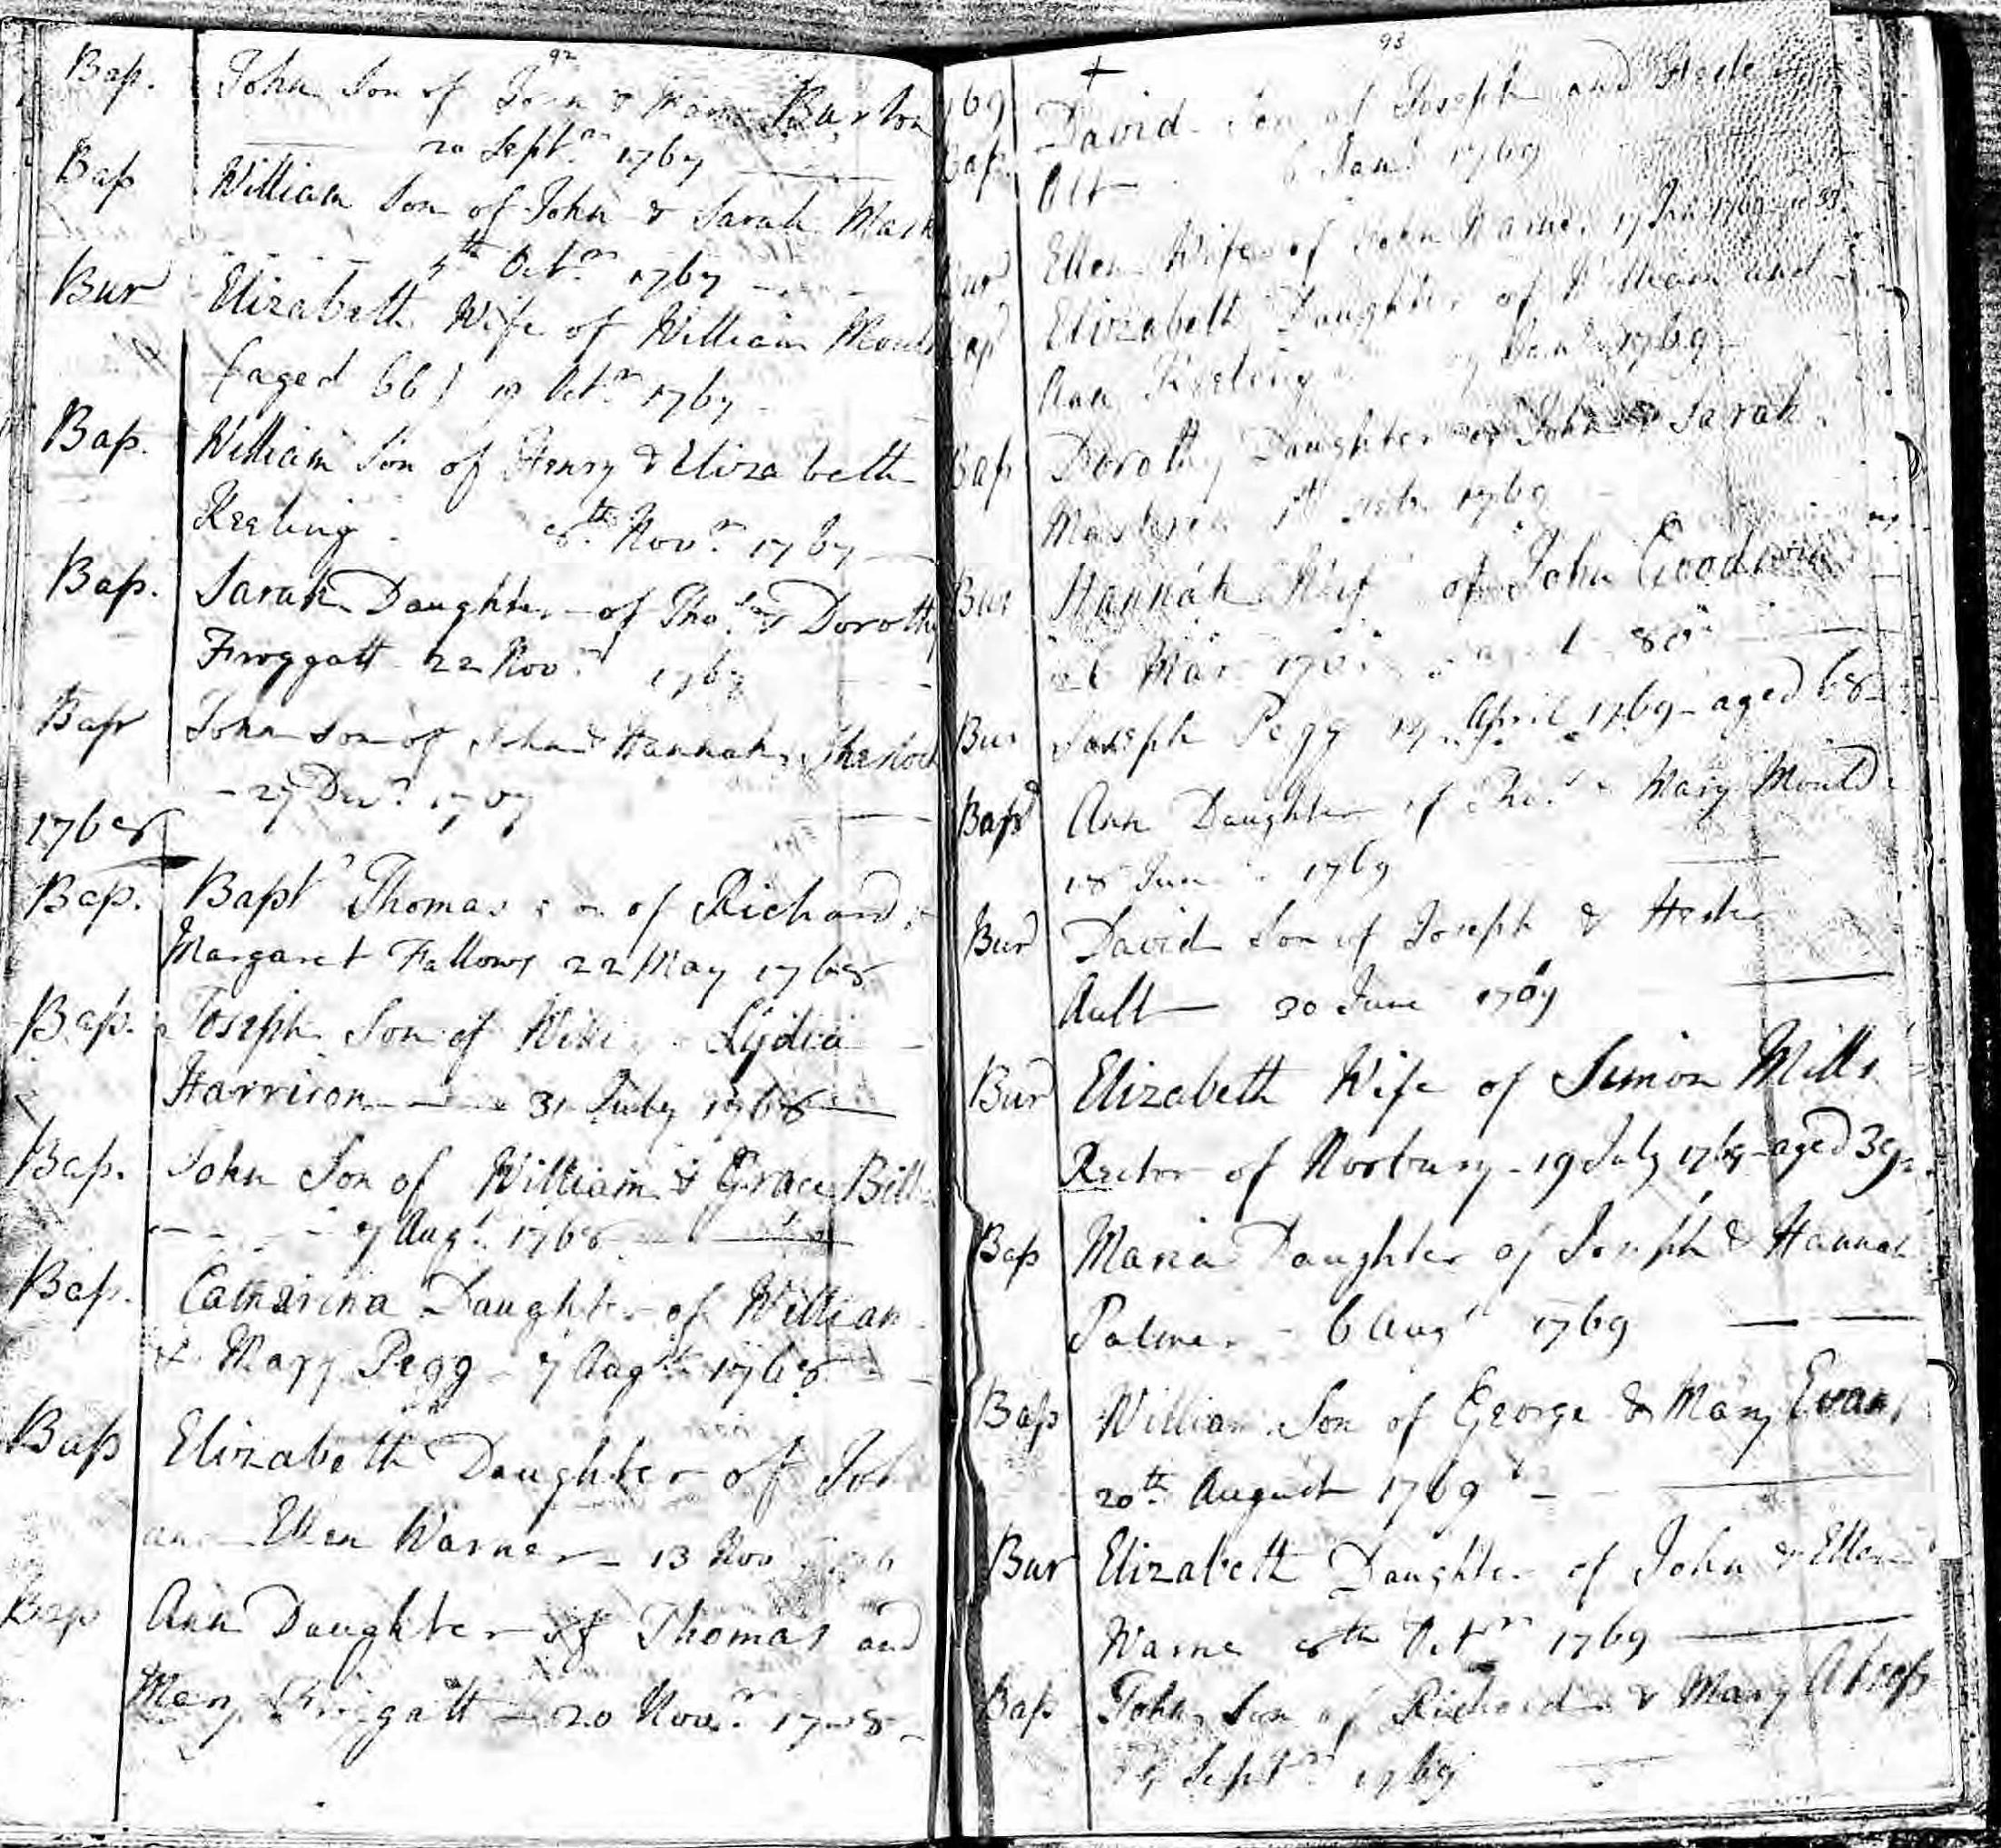 92
Bap. John Son of John & Mary Burton
20 Septr 1767
Bap William Son of John & Sarah
5th Octr 1767
Bur Elizabeth Wife of William
(aged 66) 19 Octr 1767
Bap. William Son of Henry & Elizabeth
Keeling 8th Novr 1767
Bap. Sarah Daughter of Thos & Dorothy
Froggatt 22 Novr 1767
Bap John Son of John & Hannah Sherlock
27 Decr 1767
1768
Bap. Bapt Thomas son of Richard &
Margaret Fallows 22 May 1768
Bap. Joseph Son of Lydia
Harrison 31 July 1768
Bap. John Son of William & Grace
7 Augt 1768
Bap. Catharina Daughter of William
& Mary Pegg 7 Augt 1768
Bap Elizabeth Daughter of
Ellen Warner 13 Nov
Bap Ann Daughter of Thomas and
Mary Froggatt 20 Novr
93
David Son of Joseph and
Bap. 6 Jan 1769
Bur Ellen Wife of John 17 Jan 1769
Bap Elizabeth Daughter of William and
Ann Keeling 1769
Bap Dorothy Daughter of John & Sarah
1769
Bur Hannah of John Goodwin
26 Mar 80
Bur Joseph Pegg April 1769 aged 68
Bap Ann Daughter of Thos & Mary Mould
18 June 1769
Bur David Son of Joseph & Hester
Ault 30 June 1769
Bur Elizabeth Wife of Simon Mills
Rector of Norbury 19 July 1769 aged 39
Bap Maria Daughter of Joseph & Hannah
Palmer 6 Augt 1769
Bap William Son of George & Mary Evans
20th August 1769
Bur Elizabeth Daughter of John & Ellen
Warne 8th Octr 1769
Bap John Son of Richard & Mary
Septr 1769